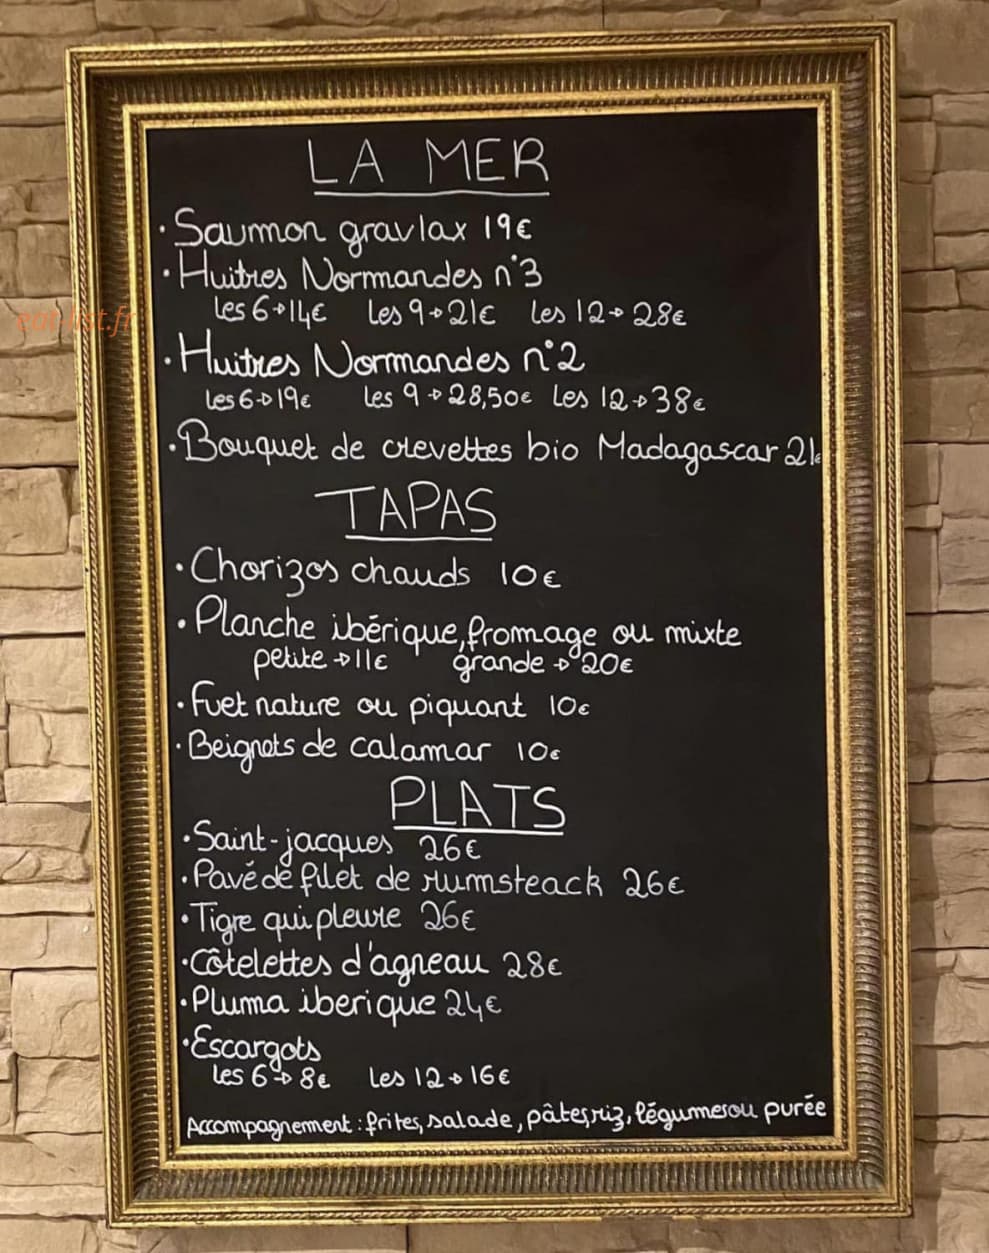 LA MER
· Saumon gravlax 19€
· Huitres Normandes n°3
les 6→14€ les 9→21€ les 12→28€
eat-list.fr
· Huitres Normandes n°2
les 6→19€ les 9→28,50€ les 12→38€
· Bouquet de crevettes bio Madagascar 21€
TAPAS
· Chorizos chauds 10€
· Planche ibérique, fromage ou mixte
petite→11€ grande→20€
· Fuet nature ou piquant 10€
· Beignets de calamar 10€
PLATS
· Saint-jacques 26€
· Pavé de filet de rumsteack 26€
· Tigre qui pleure 26€
· Côtelettes d'agneau 28€
· Pluma iberique 24€
· Escargots
les 6→8€ les 12→16€
Accompagnement : frites, salade, pâtes, riz, légumes ou purée